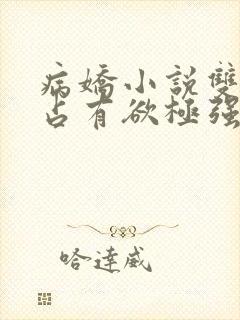 病嬌小說雙
占有欲極强
哈達威